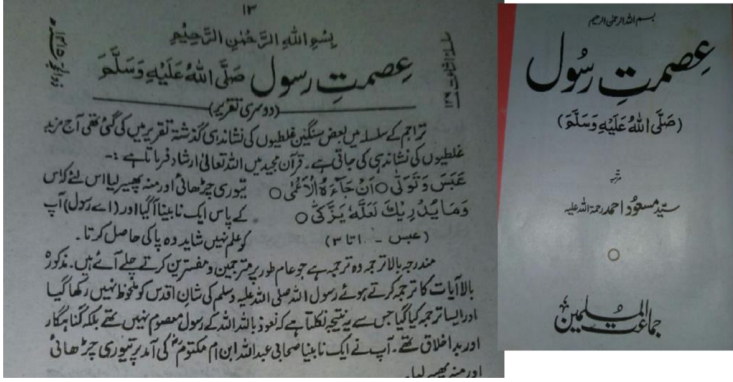 ۱۳
بِسْمِ اللهِ الرَّحْمٰنِ الرَّحِيْمِ
عِصمتِ رسول صَلَّى اللهُ عَلَيْهِ وَسَلَّمَ
(دوسری تقریر)
تراجم کے سلسلہ میں بعض سنگین غلطیوں کی نشاندہی گذشتہ تقریر میں کی گئی تھی آج مزید
غلطیوں کی نشاندہی کی جاتی ہے۔ قرآن مجید میں اللہ تعالیٰ ارشاد فرماتا ہے :-
عَبَسَ وَتَوَلّٰىٓ ○ اَنْ جَآءَهُ الْاَعْمٰى ○ تیوری چڑھائی اور منہ پھیر لیا اس لئے کہ اس
وَمَا يُدْرِيْكَ لَعَلَّهٗ يَزَّكّٰىٓ ○ کے پاس ایک نابینا آگیا اور (اے رسول) آپ
(عبس - ۱ تا ۳) کو علم نہیں شاید وہ پاکی حاصل کرتا۔
مندرجہ بالا ترجمہ وہ ترجمہ ہے جو عام طور پر مترجمین و مفسرین کرتے چلے آئے ہیں۔ مذکورہ
بالا آیات کا ترجمہ کرتے ہوئے رسول اللہ صلی اللہ علیہ وسلم کی شان اقدس کو ملحوظ نہیں رکھا گیا
اور ایسا ترجمہ کیا گیا جس سے یہ نتیجہ نکلتا ہے کہ نعوذ باللہ اللہ کے رسول معصوم نہیں تھے بلکہ گناہگار
اور بد اخلاق تھے۔ آپ نے ایک نابینا صحابی عبداللہ ابن ام مکتومؓ کی آمد پر تیوری چڑھائی
اور منہ پھیر لیا۔
بسم اللہ الرحمٰن الرحیم
عِصمتِ رسُول
(صَلَّى اللهُ عَلَيْهِ وَسَلَّمَ)
سیّد مسعود احمد رحمۃ اللہ علیہ
جماعت المسلمین